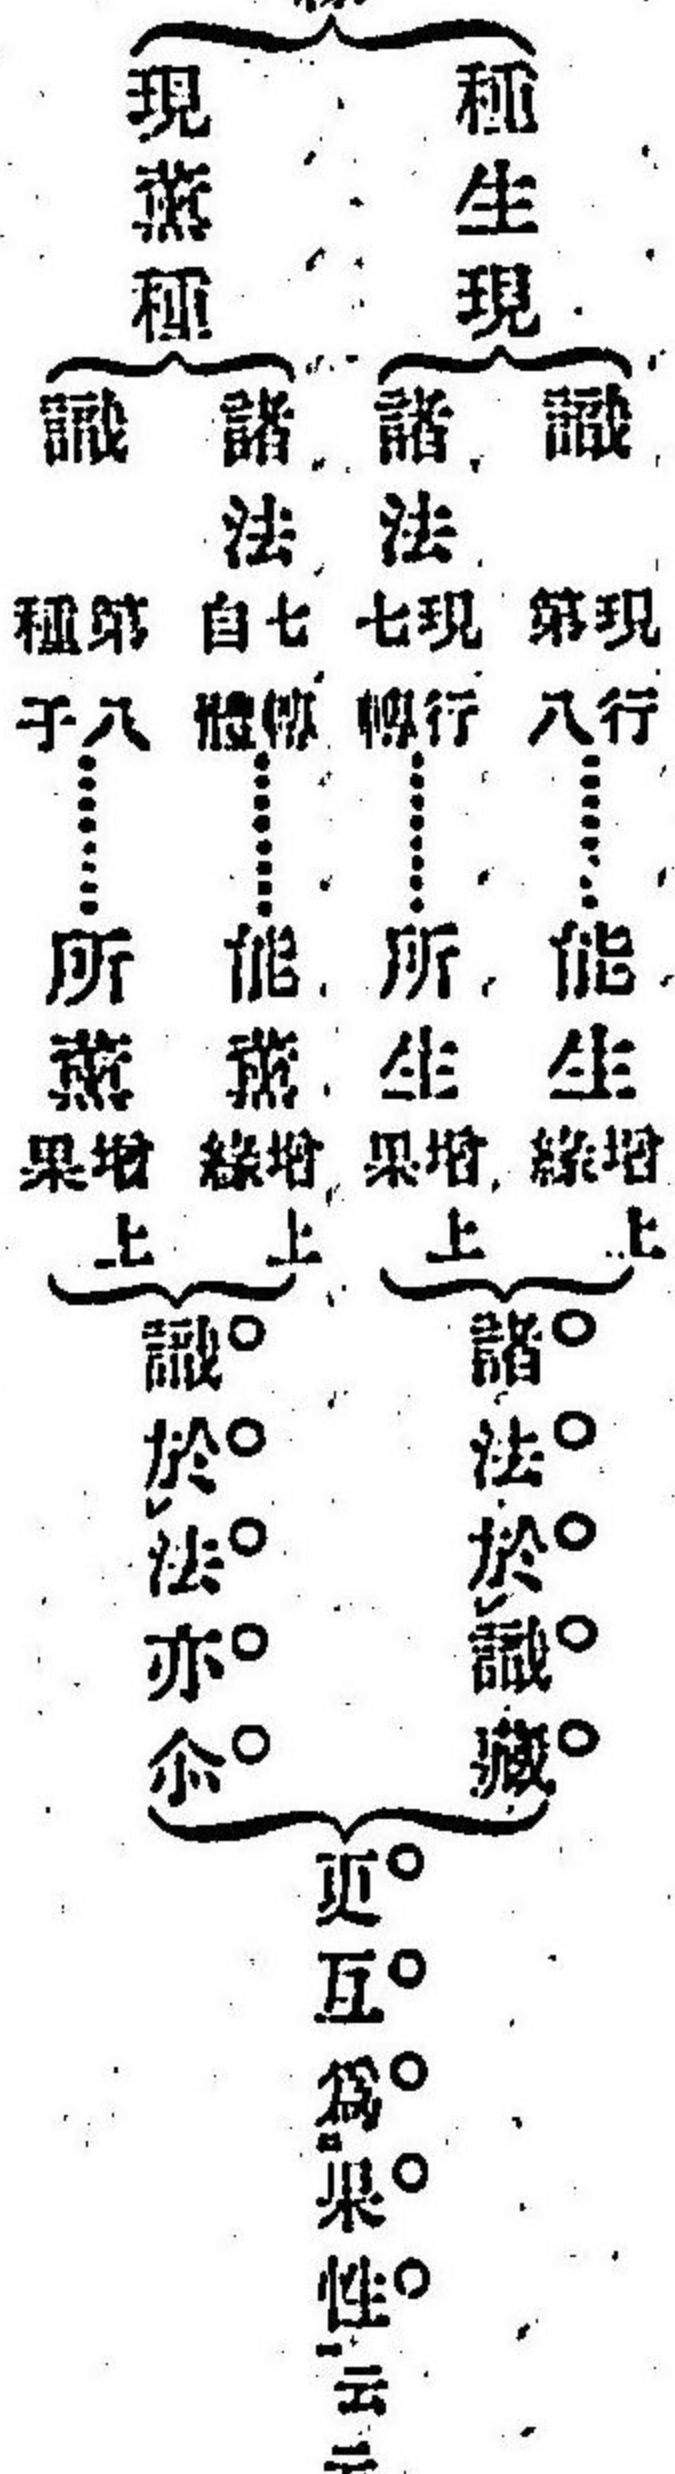 種生現
識
現行
第八
能生
增上
緣
諸法
現行
七轉
所生
增上
果
諸法於識藏
現熏種
諸法
七轉
自體
能熏
增上
緣
識
第八
種子
所熏
增上
果
識於法亦尒
更互爲果性
云云